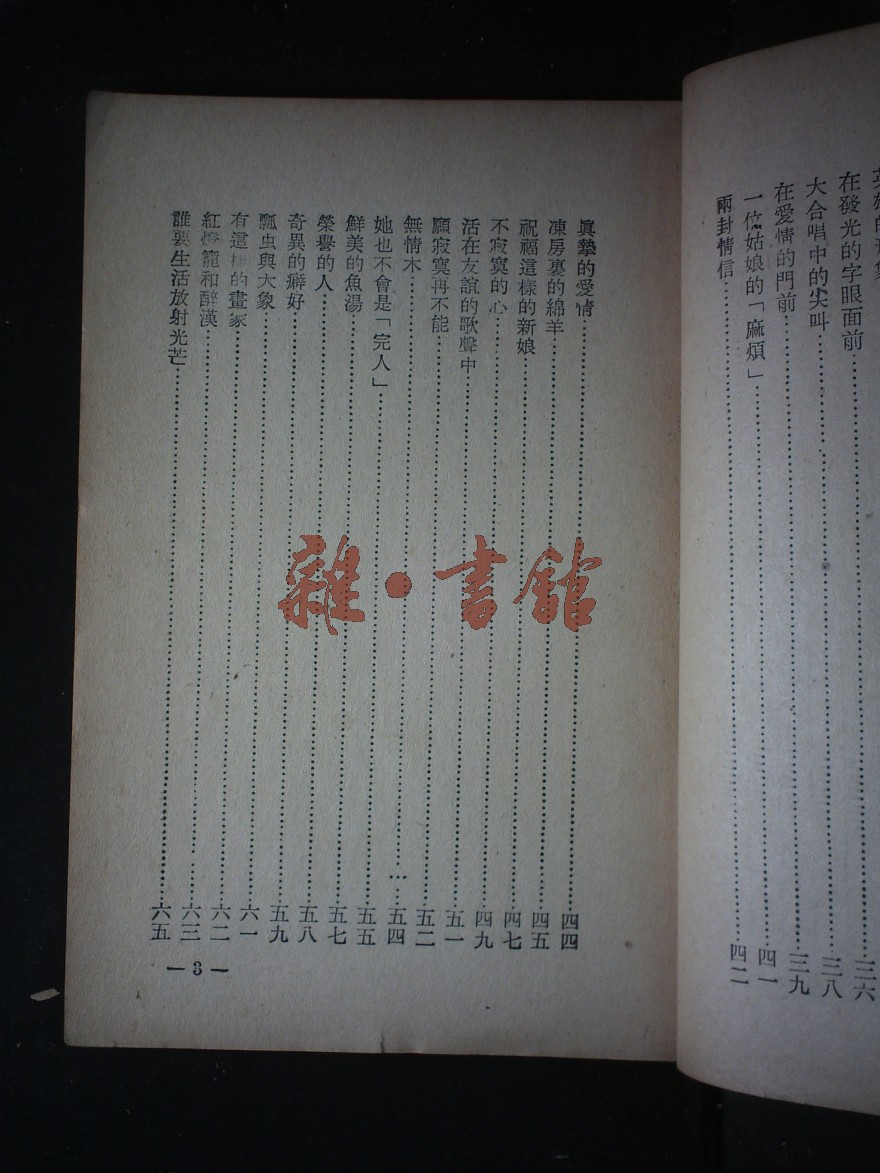 在發光的字眼面前……三六
大合唱中的尖叫……三八
在愛情的門前……三九
一位姑娘的「麻煩」……四一
兩封情信……四二
眞摯的愛情……四四
凍房裏的綿羊……四五
祝福這樣的新娘……四七
不寂寞的心……四九
活在友誼的歌聲中……五一
願寂寞再不能……五二
無情木……五四
她也不會是「完人」……五五
鮮美的魚湯……五七
榮譽的人……五八
奇異的癖好……五九
瓢虫與大象……六一
有這樣的畫家……六二
紅燈籠和醉漢……六三
誰要生活放射光芒……六五
— 3 —
雜·書館